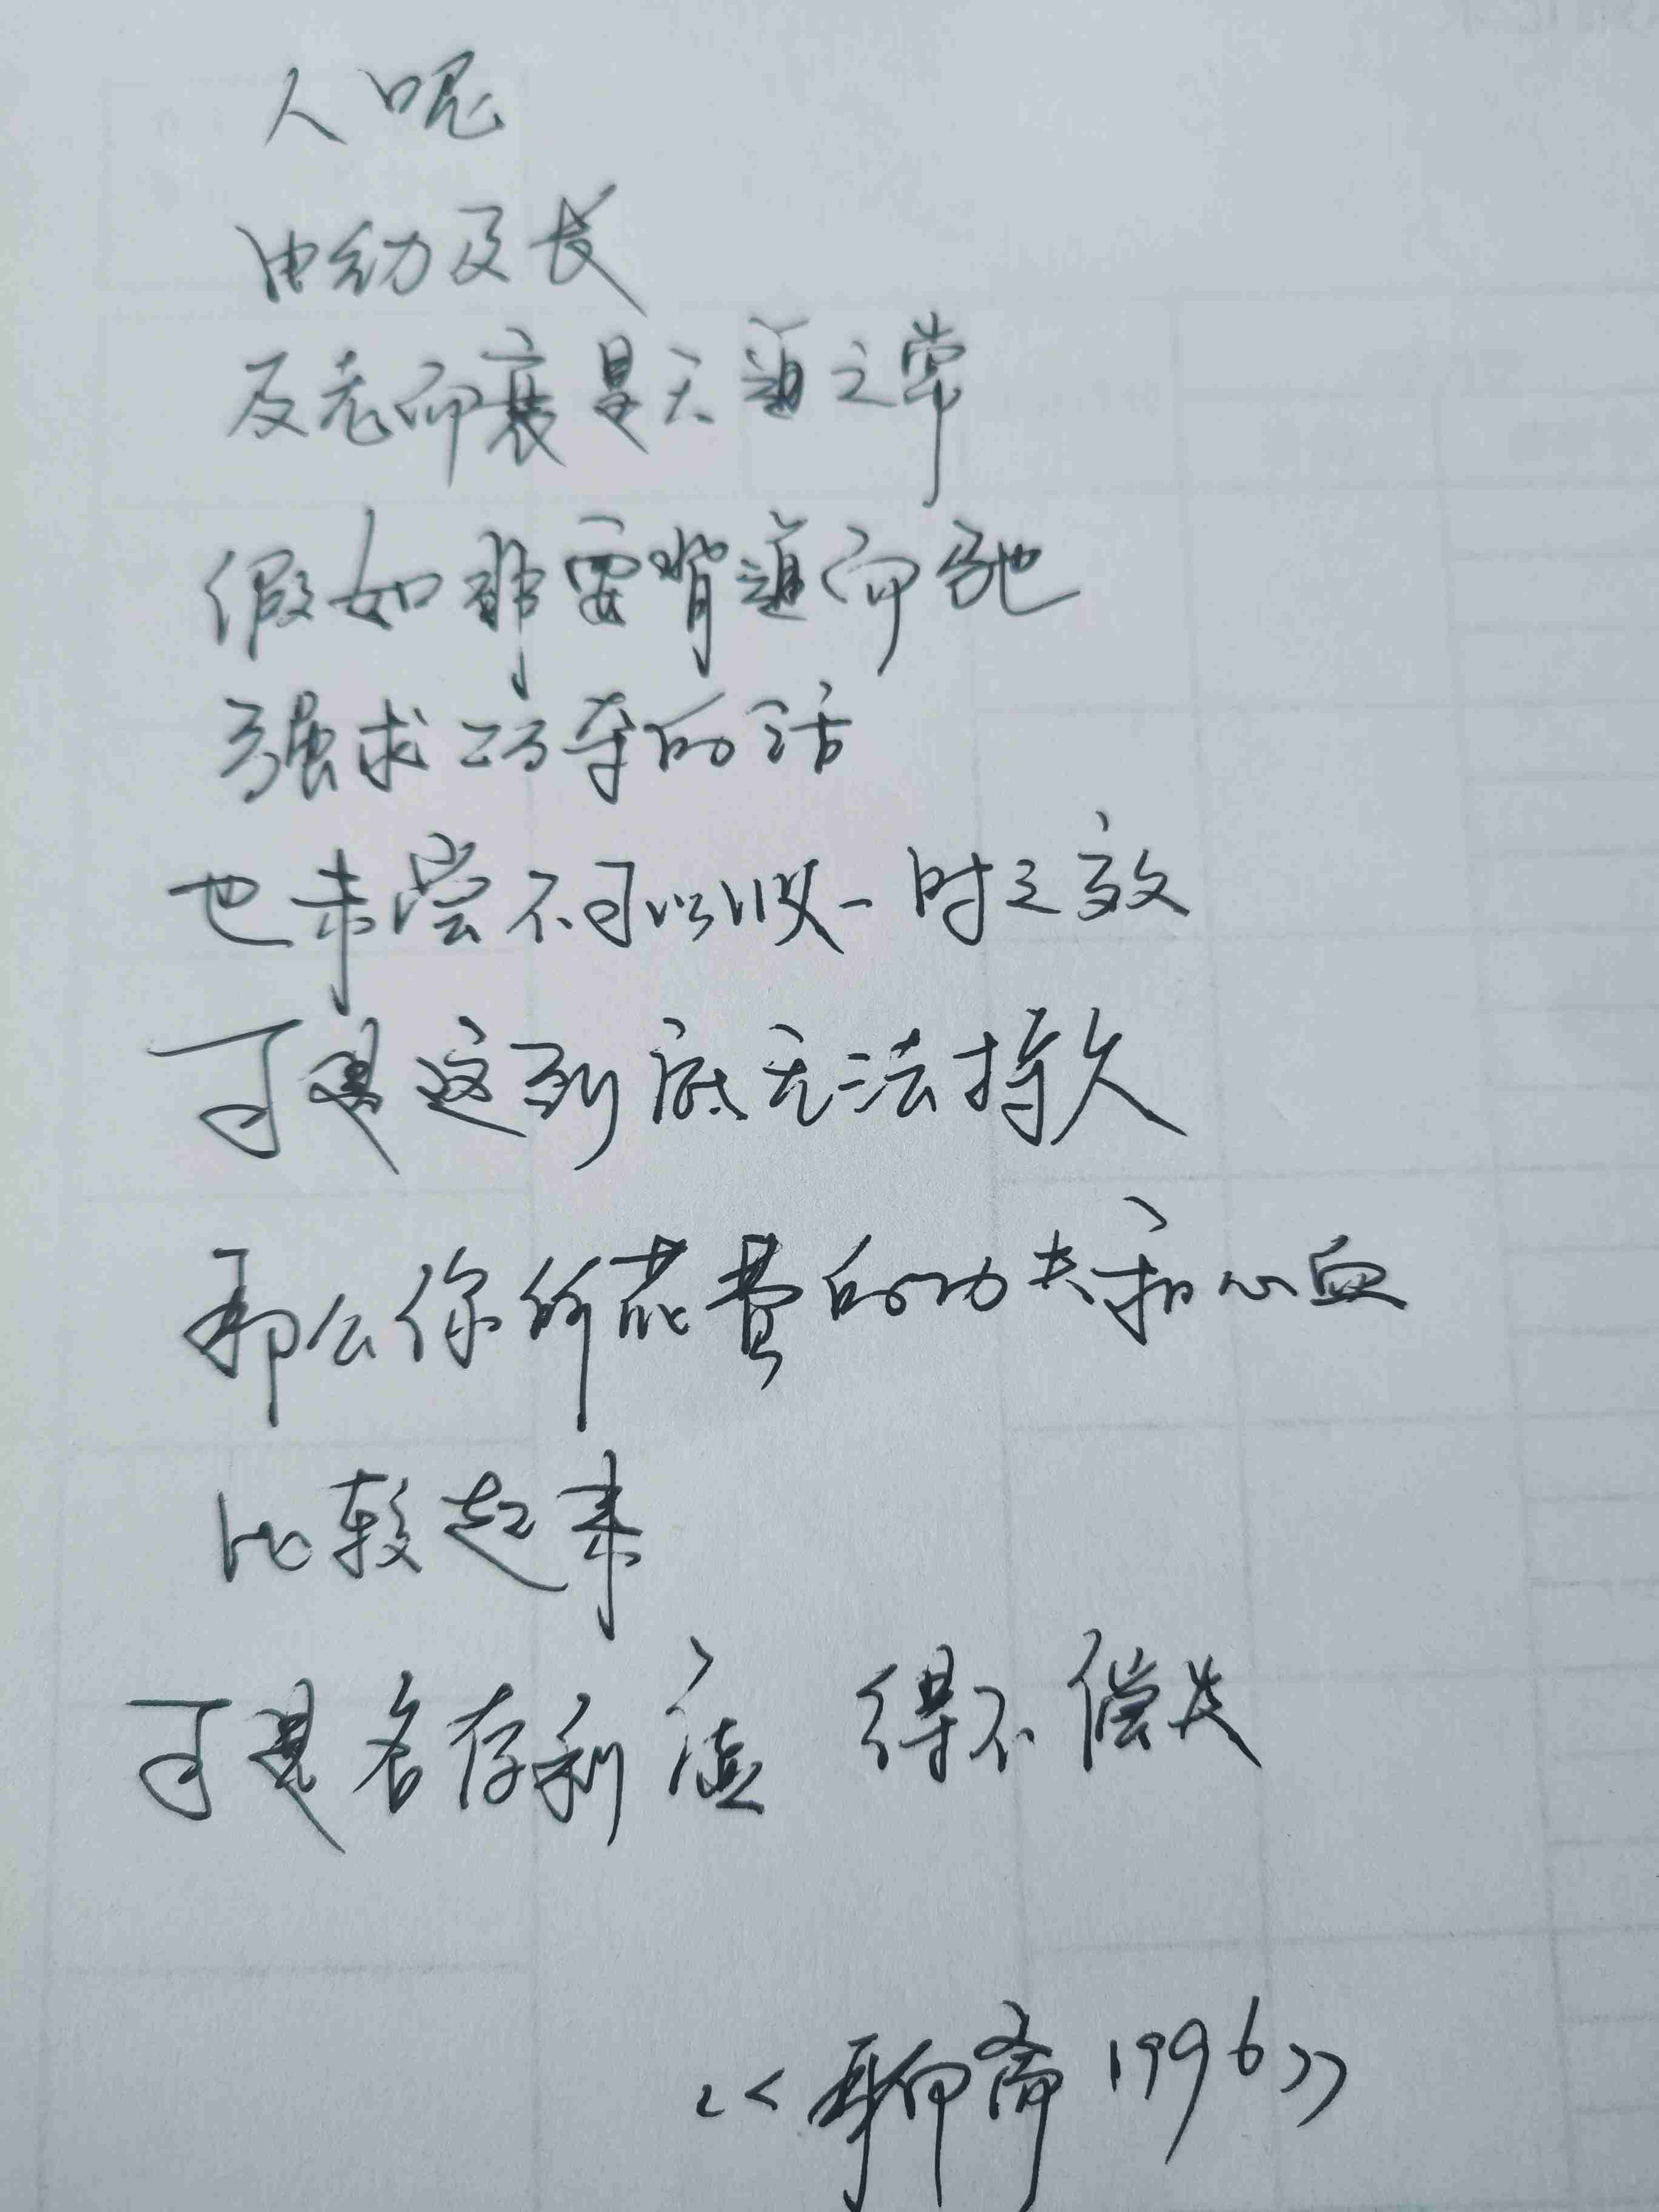 人呢
由幼及长
及老而衰是天道之常
假如非要背道而驰
强求巧夺的话
也未尝不可以收一时之效
可是这到底无法持久
那么你所花费的功夫和心血
比较起来
可是名存利虚 得不偿失
<<聊斋1996>>